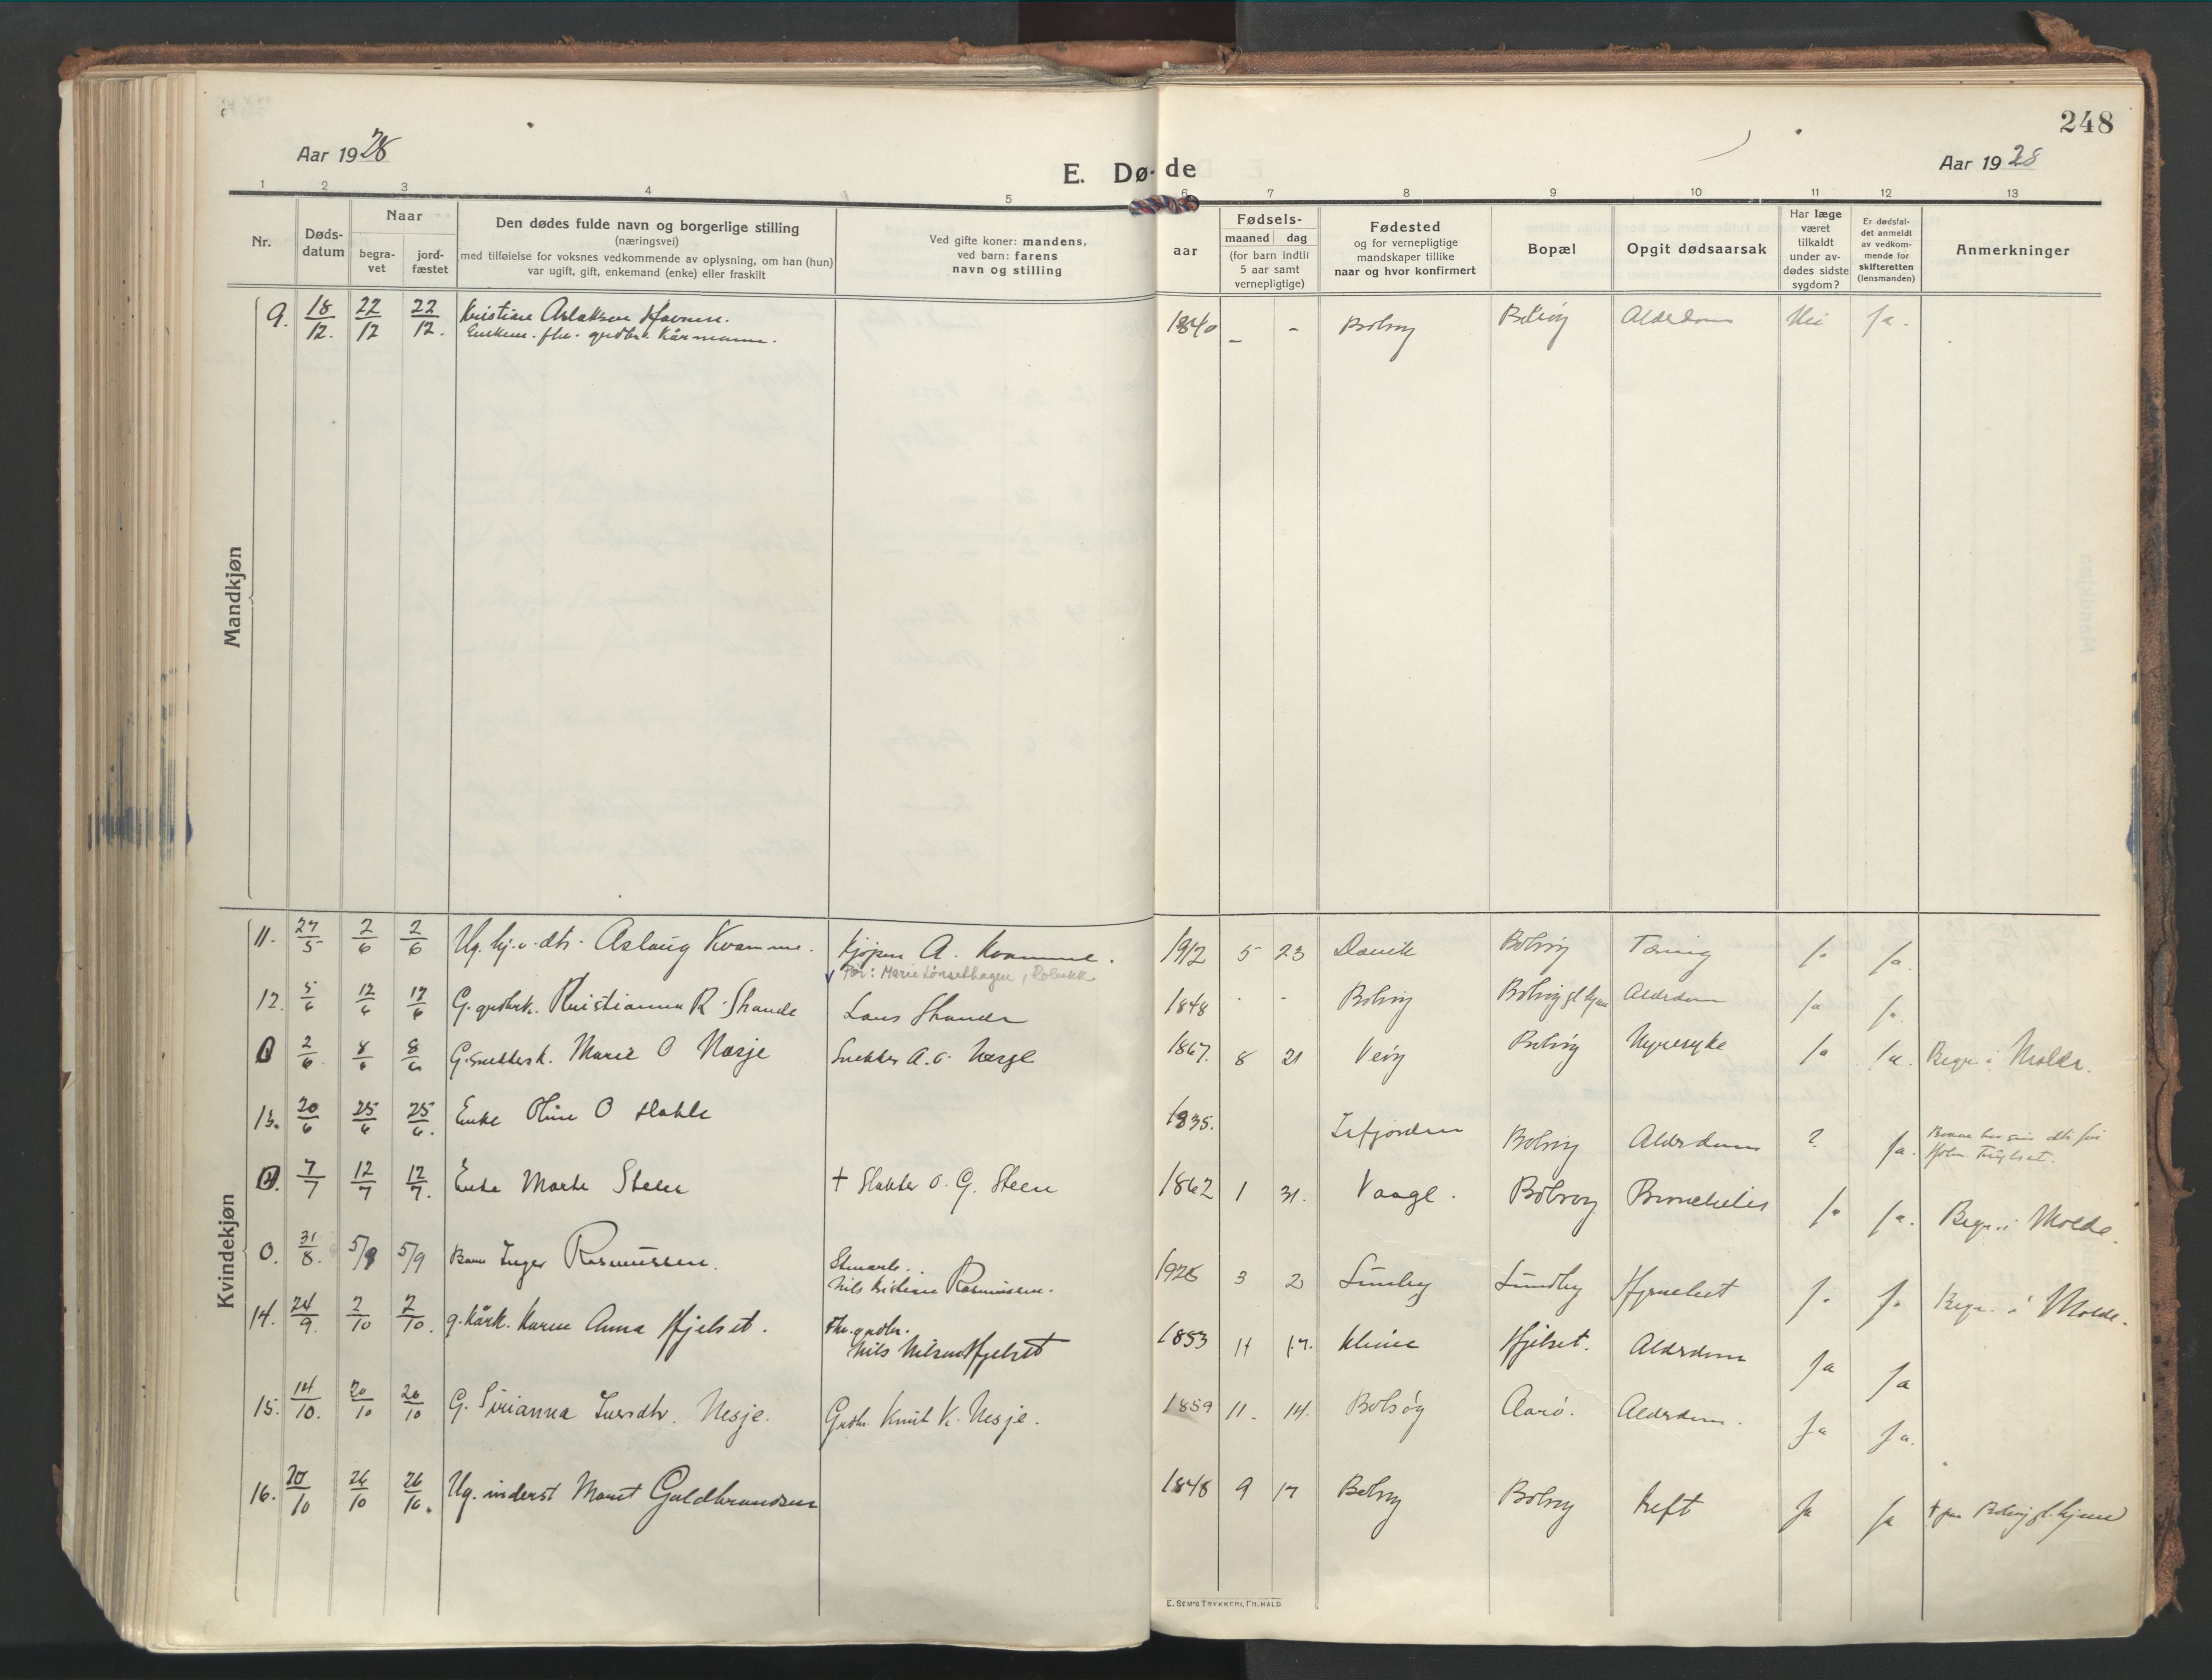 248
Aar 1928
E. Dø-de
Aar 1928
1 2 3 4 5 6 7 8 9 10 11 12 13
Nr.
Døds-
datum
Naar
begra-
vet
jord-
fæstet
Den dødes fulde navn og borgerlige stilling
(næringsvei)
med tilføielse for voksnes vedkommende av oplysning, om han (hun)
var ugift, gift, enkemand (enke) eller fraskilt
Ved gifte koner: mandens,
ved barn: farens
navn og stilling
aar
Fødsels-
maaned dag
(for barn indtil
5 aar samt
vernepligtige)
Fødested
og for vernepligtige
mandskaper tillike
naar og hvor konfirmert
Bopæl
Opgit dødsaarsak
Har læge
været
tilkaldt
under av-
dødes sidste
sygdom?
Er dødsfal-
det anmeldt
av vedkom-
mende for
skifteretten
(lensmanden)
Anmerkninger
Mandkjøn
9. 18/12. 22/12 22/12. Kristian Aslaksen 1840 - - Bolsøy Bolsøy Alderdom Nei Ja.
Enkem. fhv. grdbr. Kårmann.
Kvindekjøn
11. 27/5 2/6 2/6 Ug. hj.v. dtr. Aslaug Kvamme. Kjøpm A. Kvamme. 1912 5 23 Bolsøy Tæring Ja Ja.
For: Marie Lønsethagen, Røbekk
12. 5/6 12/6 12/6 G. grdbrk. Kristianna R. Strande Lars Strande 1848 - - Bolsøy Bolsøy gl. hjem Alderdom Ja Ja.
0 2/6 8/6 8/6 G. snekkerk. Marie O Nesje Snekker A. O. Nesje 1867. 8 21 Veøy Bolsøy Nyresyke Ja Ja. Begr. i Molde.
13. 20/6 25/6 25/6. Enke Oline O 1835. Isfjorden Bolsøy Alderdom ? Ja.
0. 7/7 12/7 12/7. Enke Marte Steen † Slakter O. G. Steen 1862 1 31. Vaage. Bolsøy Bronchitis Ja Ja. Begr. i Molde.
0. 31/8. 5/9 5/9 Barn Inger Rasmussen. 1928 3 2 Lundby Lundby Ja Ja Begr. i Molde.
Nils Kristian Rasmussen.
14. 24/9. 2/10 2/10. g. kårk. Karen Anna Hjelset. Fhv. grdbr. 1853 11 17. Kleive Hjelset. Alderdom Ja Ja
Nils Nilsen Hjelset
15. 14/10. 20/10 20/10 G. Sirianna Iversdtr. Nesje. Grdbr. Knut K. Nesje. 1859 11. 14. Bolsøy Aarø. Alderdom. Ja Ja.
16. 20/10 26/10 26/10. Ug. inderst Marit Guldbrandsen 1848 9 17 Bolsøy Bolsøy Kreft Ja Ja † paa Bolsøy gl. hjem
E. SEM'S TRYKKERI, FR.HALD